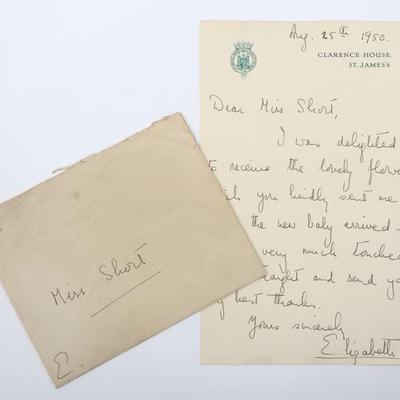 Aug. 25th 1950.
CLARENCE HOUSE,
ST. JAMES'S
Dear Miss Short,
I was delighted
to receive the lovely flowe
you kindly sent me
the new baby arrived –
very much touched
and send yo
best thanks.
Yours sincerely
Elizabeth
Miss Short
E.